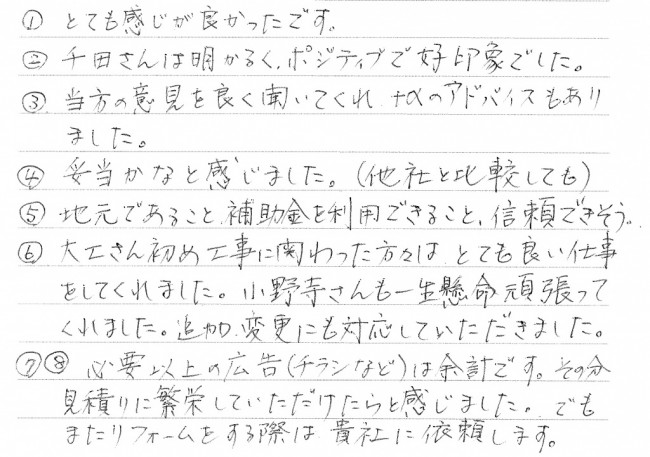 ① とても感じが良かったです。
② 千田さんは明かるく、ポジティブで好印象でした。
③ 当方の意見を良く聞いてくれ +αのアドバイスもあり
ました。
④ 妥当かなと感じました。(他社と比較しても)
⑤ 地元であること、補助金を利用できること、信頼できそう。
⑥ 大工さん初め工事に関わった方々は とても良い仕事
をしてくれました。小野寺さんも一生懸命頑張って
くれました。追加、変更にも対応していただきました。
⑦⑧ 必要以上の広告(チラシなど)は余計です。その分
見積りに繁栄していただけたらと感じました。でも
またリフォームをする際は 貴社に依頼します。